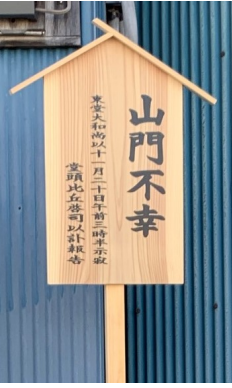 山門不幸
東堂大和尚以十一月二十日午前三時半示寂
堂頭比丘啓司以訃報告